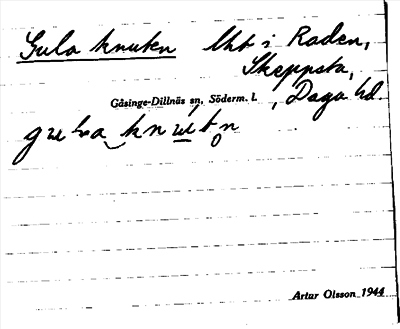 Gula knuten lht i Raden,
Skeppsta,
Gåsinge-Dillnäs sn, Söderm. l. , Daga hd.
Artur Olsson 1944